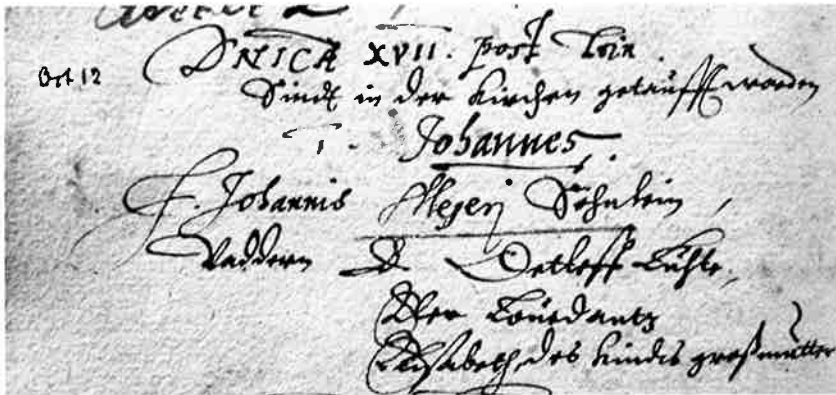 Oct 12 DNICA XVII. post Trin.
Sindt in der Kirchen getaufft worden
1. Johannes.
F. Johannis Meyeri Söhnlein,
Vaddern D Detleff Lühle,
Elisabeth des Kindes großmutter